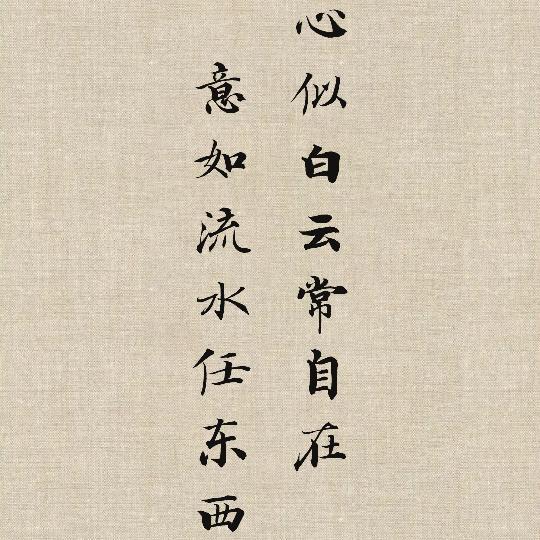 心似白云常自在
意如流水任东西